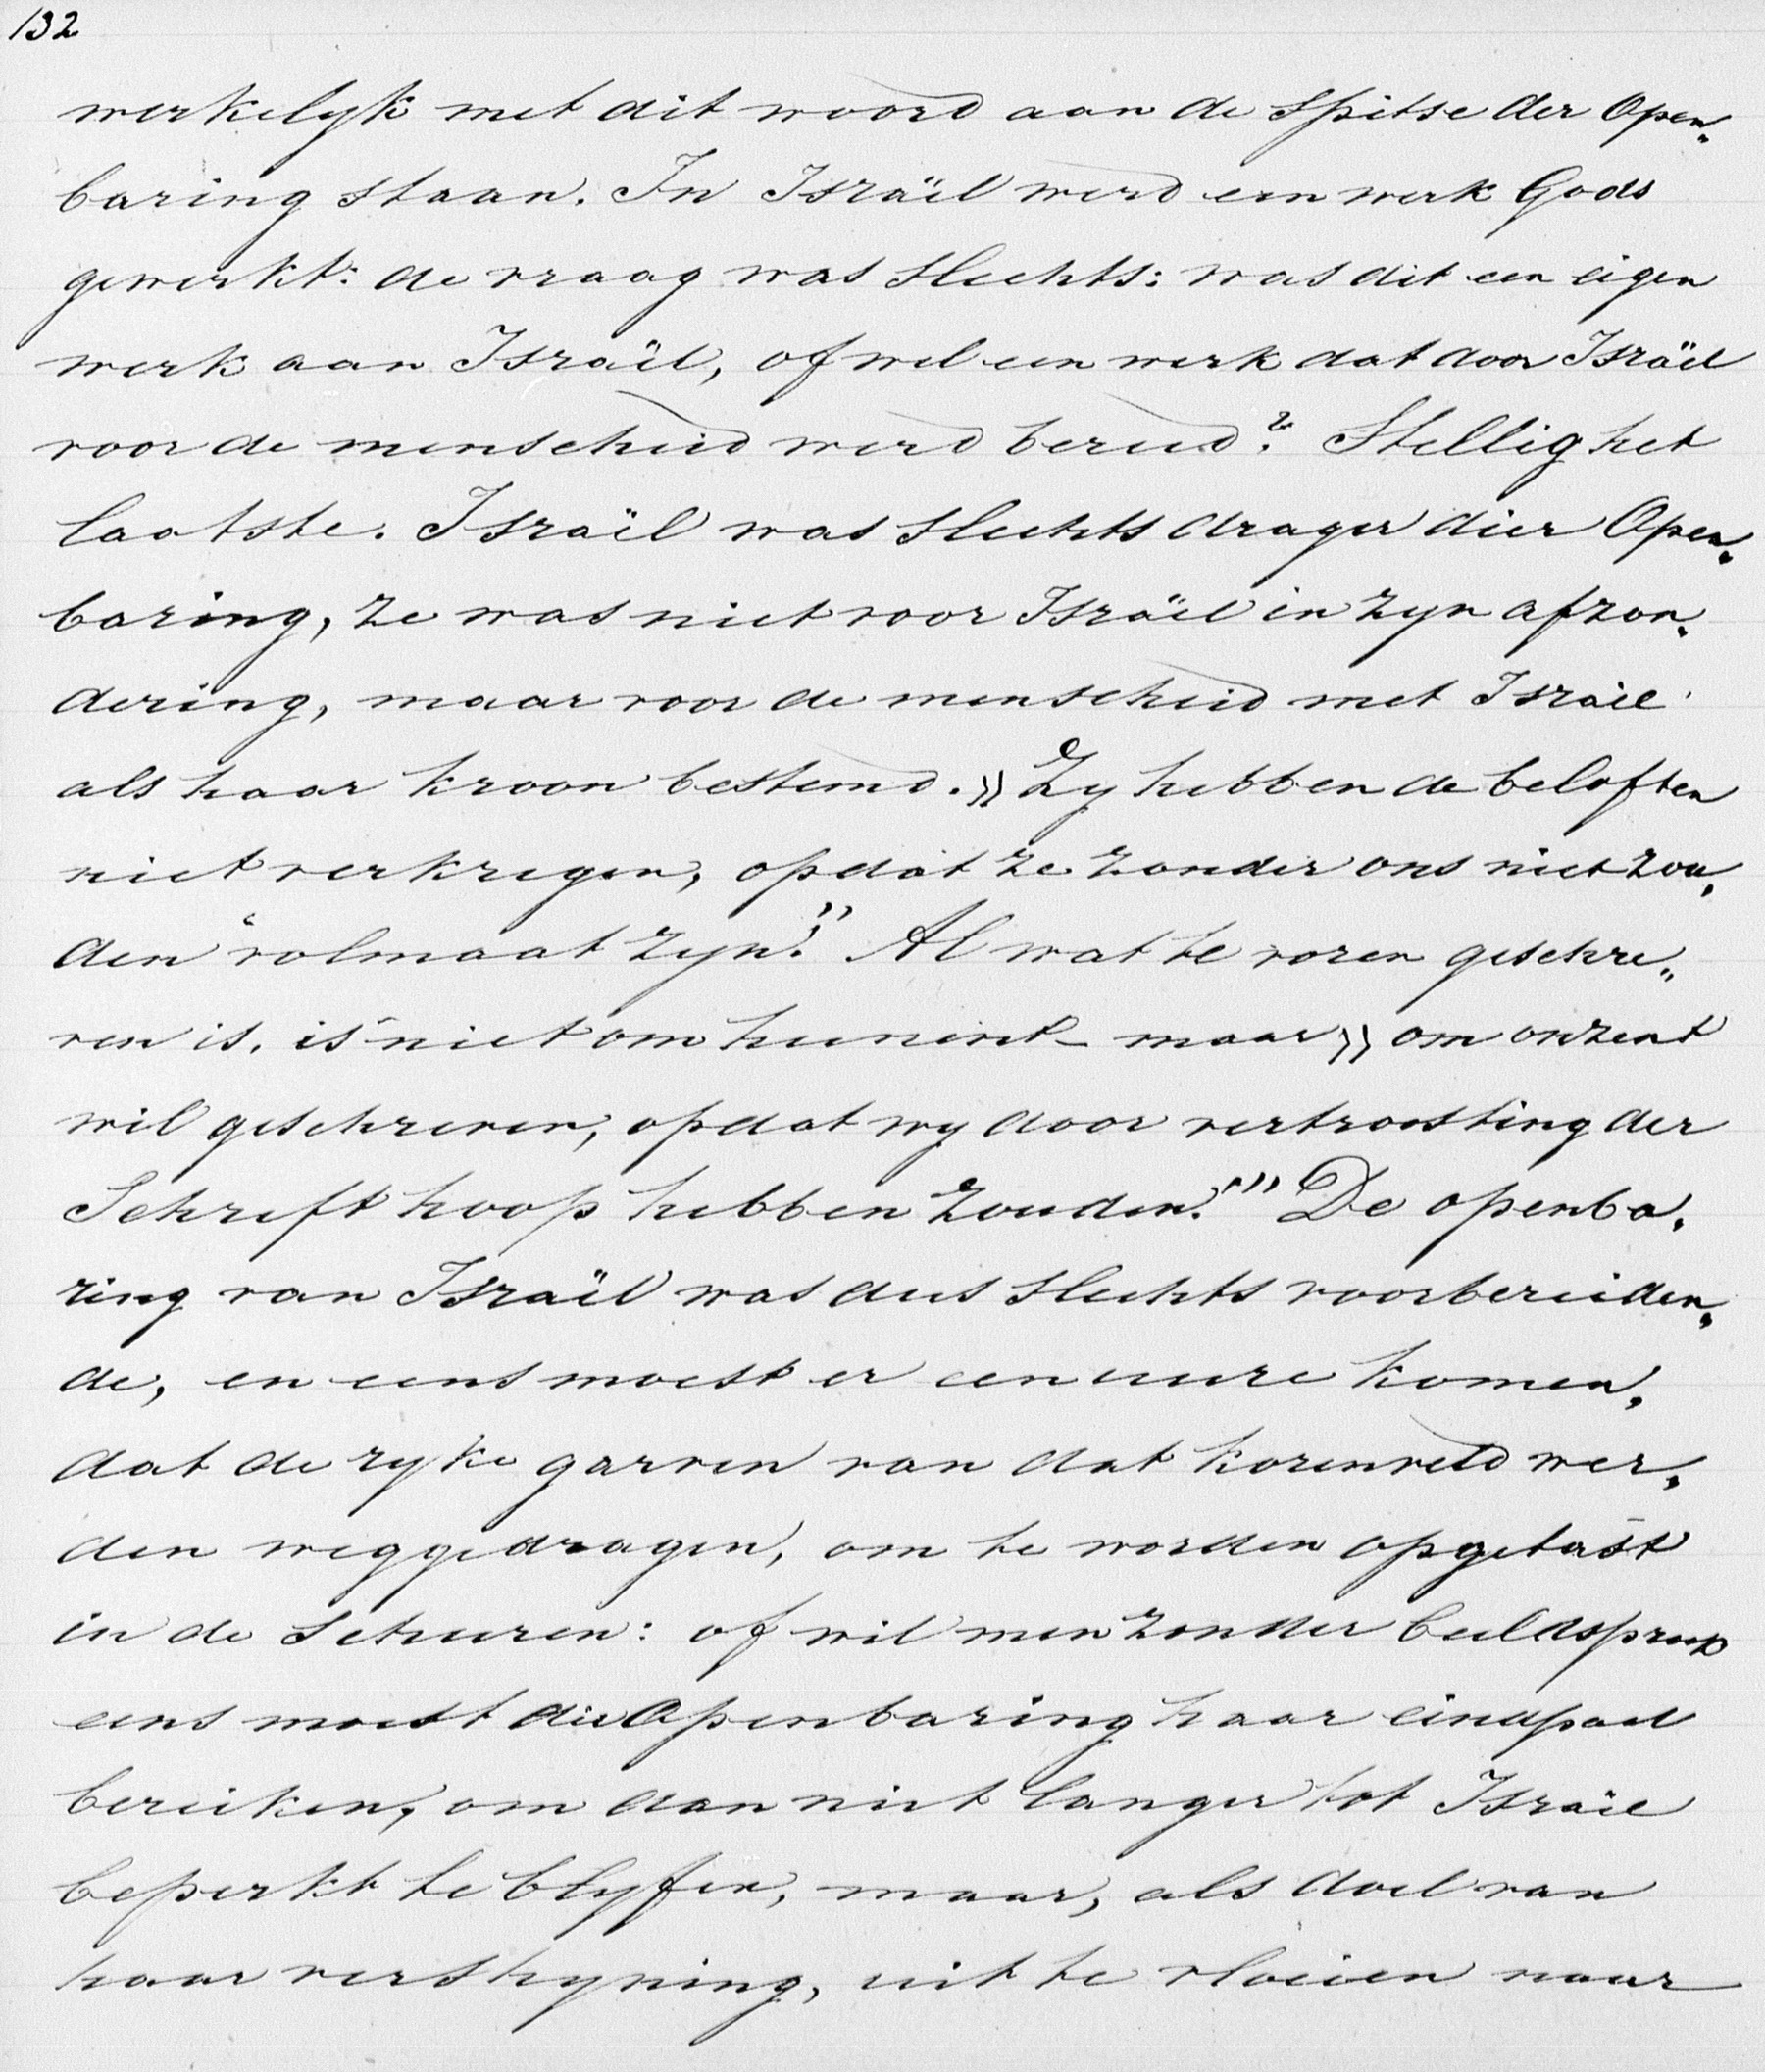 132
werkelyk met dit woord aan de spitse der Open„
baring staan. In Israël werd een werk Gods
gewerkt: de vraag was slechts: was dit een eigen
werk aan Israël, of wel een werk dat door Israël
voor de menscheid werd bereid? Stellig het
laatste. Israël was slechts drager dier Open„
baring, ze was niet voor Israël in zyn afzon„
dering, maar voor de menscheid met Israël
als haar kroon bestemd. „Zy hebben de beloften
niet verkregen, opdat ze zonder ons niet zou„
den volmaat zyn." Al wat te voren geschre„
ven is, is niet om hunent- maar „om onzent
wil geschreven, opdat wy door vertroosting der
Schrift hoop hebben zouden." De openba„
ring van Israël was dus slechts voorbereiden„
de, en eens moest er een uure komen,
dat de ryke garven van dat korenveld wer„
den weggedragen, om te worden opgetast
in de schuren: of wil men zonder beeldspraak
eens moest die Openbaring haar eindpaal
bereiken, om dan niet langer tot Israël
beperkt te blyfen, maar, als doel van
haar vershyning, uit te vloeien naar